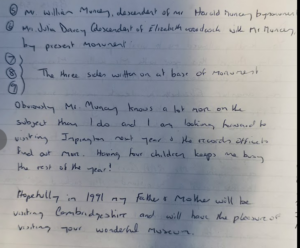 ⑤ Mr. William Muncey, descendent of Mr Harold Muncey by
⑥ Mr. John Descendent of Elizabeth Woodcock with Mr Muncey
by present monument
⑦
⑧ } The three sides written on at base of monument
⑦
Obviously Mr. Muncey knows a lot more on the
subject than I do and I am looking forward to
visiting Impington next year & the records office to
find out more. Having four children keeps me busy
the rest of the year!
Hopefully in 1991 my Father & Mother will be
visiting Cambridgeshire and will have the pleasure of
visiting your wonderful Museum.